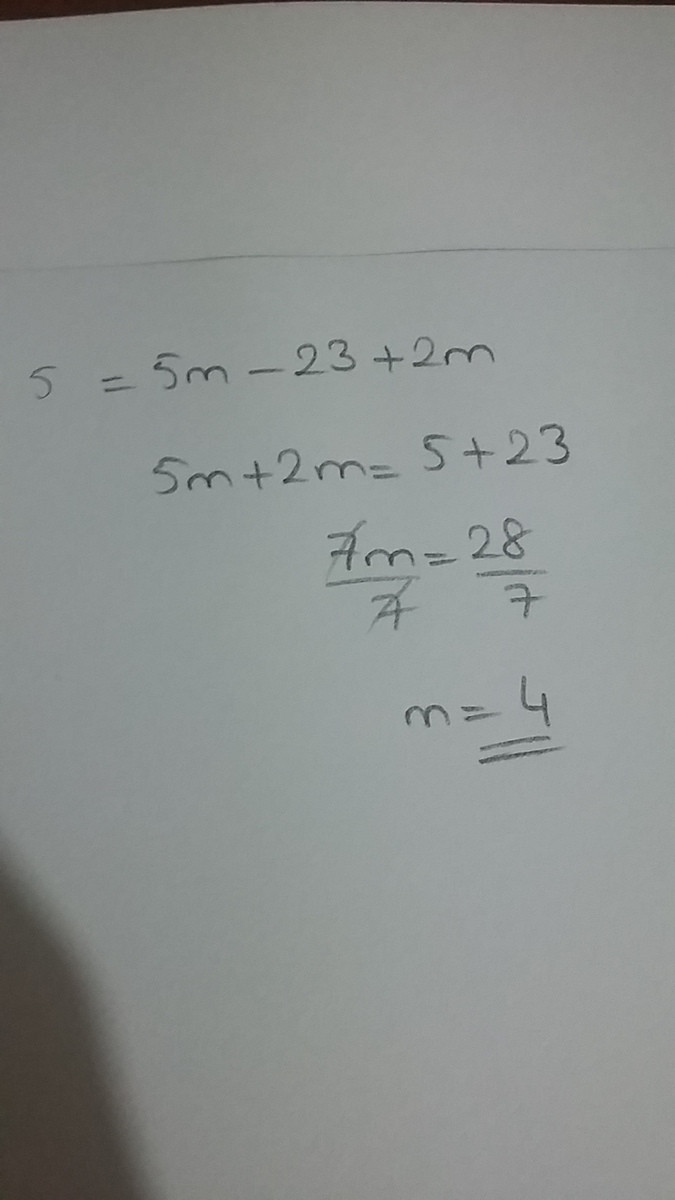 5 = 5m - 23 + 2m
5m + 2m = 5 + 23
7m/7 = 28/7
m = 4